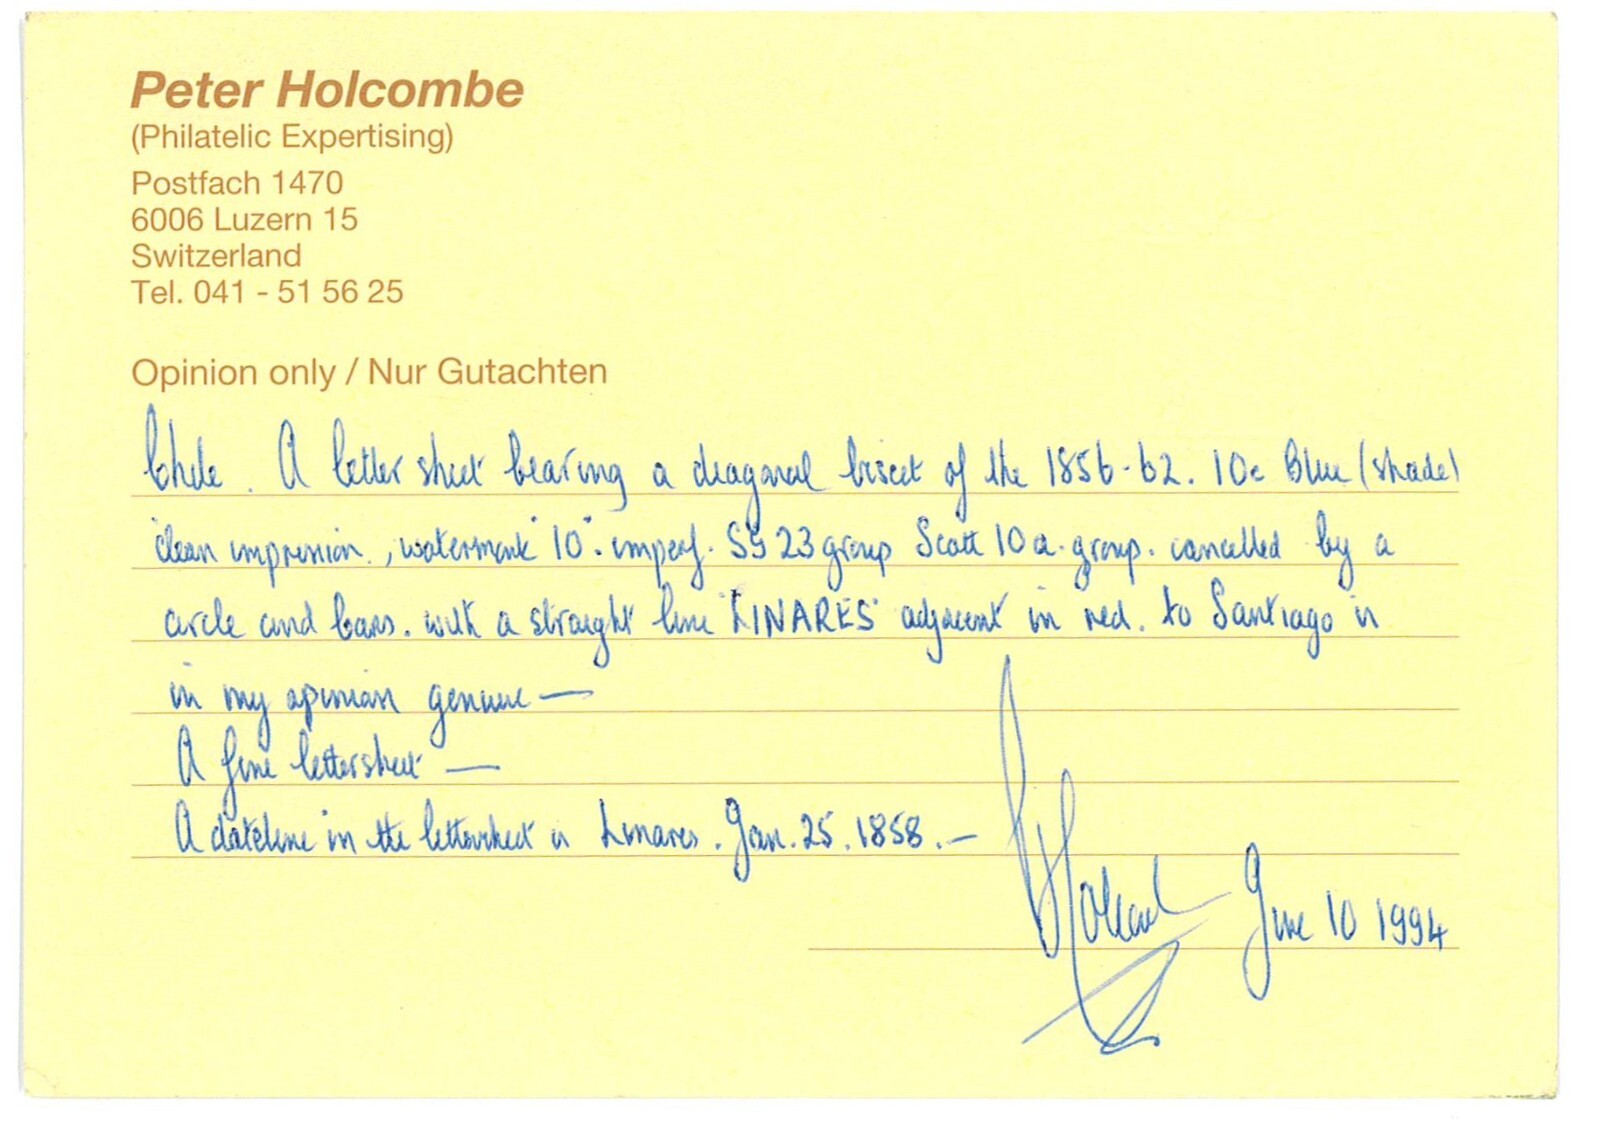 Peter Holcombe
(Philatelic Expertising)
Postfach 1470
6006 Luzern 15
Switzerland
Tel. 041 - 51 56 25
Opinion only / Nur Gutachten
Chile. A letter sheet bearing a diagonal bisect of the 1856-62. 10c Blue (shade)
clean impression, watermark "10". imperf. SG 23 group Scott 10a. group. cancelled by a
circle and bars. with a straight line "LINARES" adjacent in red. to Santiago is
in my opinion genuine —
A fine lettersheet —
A dateline in the lettersheet is Linares. Jan. 25. 1858. —
Holcombe June 10 1994